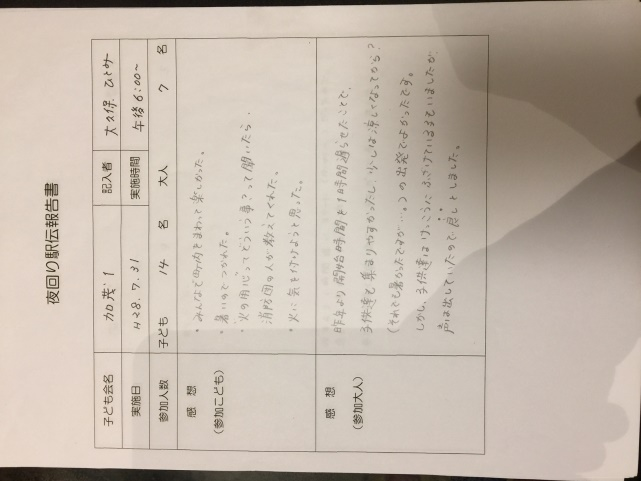 夜回り駅伝報告書
子ども会名 加茂:1 記入者 大久保 ひとみ
実施日 H28.7.31 実施時間 午後6:00~
参加人数 子ども 14 名 大人 7 名
感 想
(参加こども)
・みんなで町内をまわって楽しかった。
・暑いのでつかれた。
・火の用心ってどういう事?って聞いたら、
消防団の人が教えてくれた。
・火に気を付けようと思った。
感 想
(参加大人)
昨年より開始時間を1時間遅らせたことで、
子供達も集まりやすかったし、少しは涼しくなってから?
(それでも暑かったですが…。)の出発でよかったです。
しかし、子供達はけっこうふざけている子もいましたが、
声は出していたので、良しとしました。